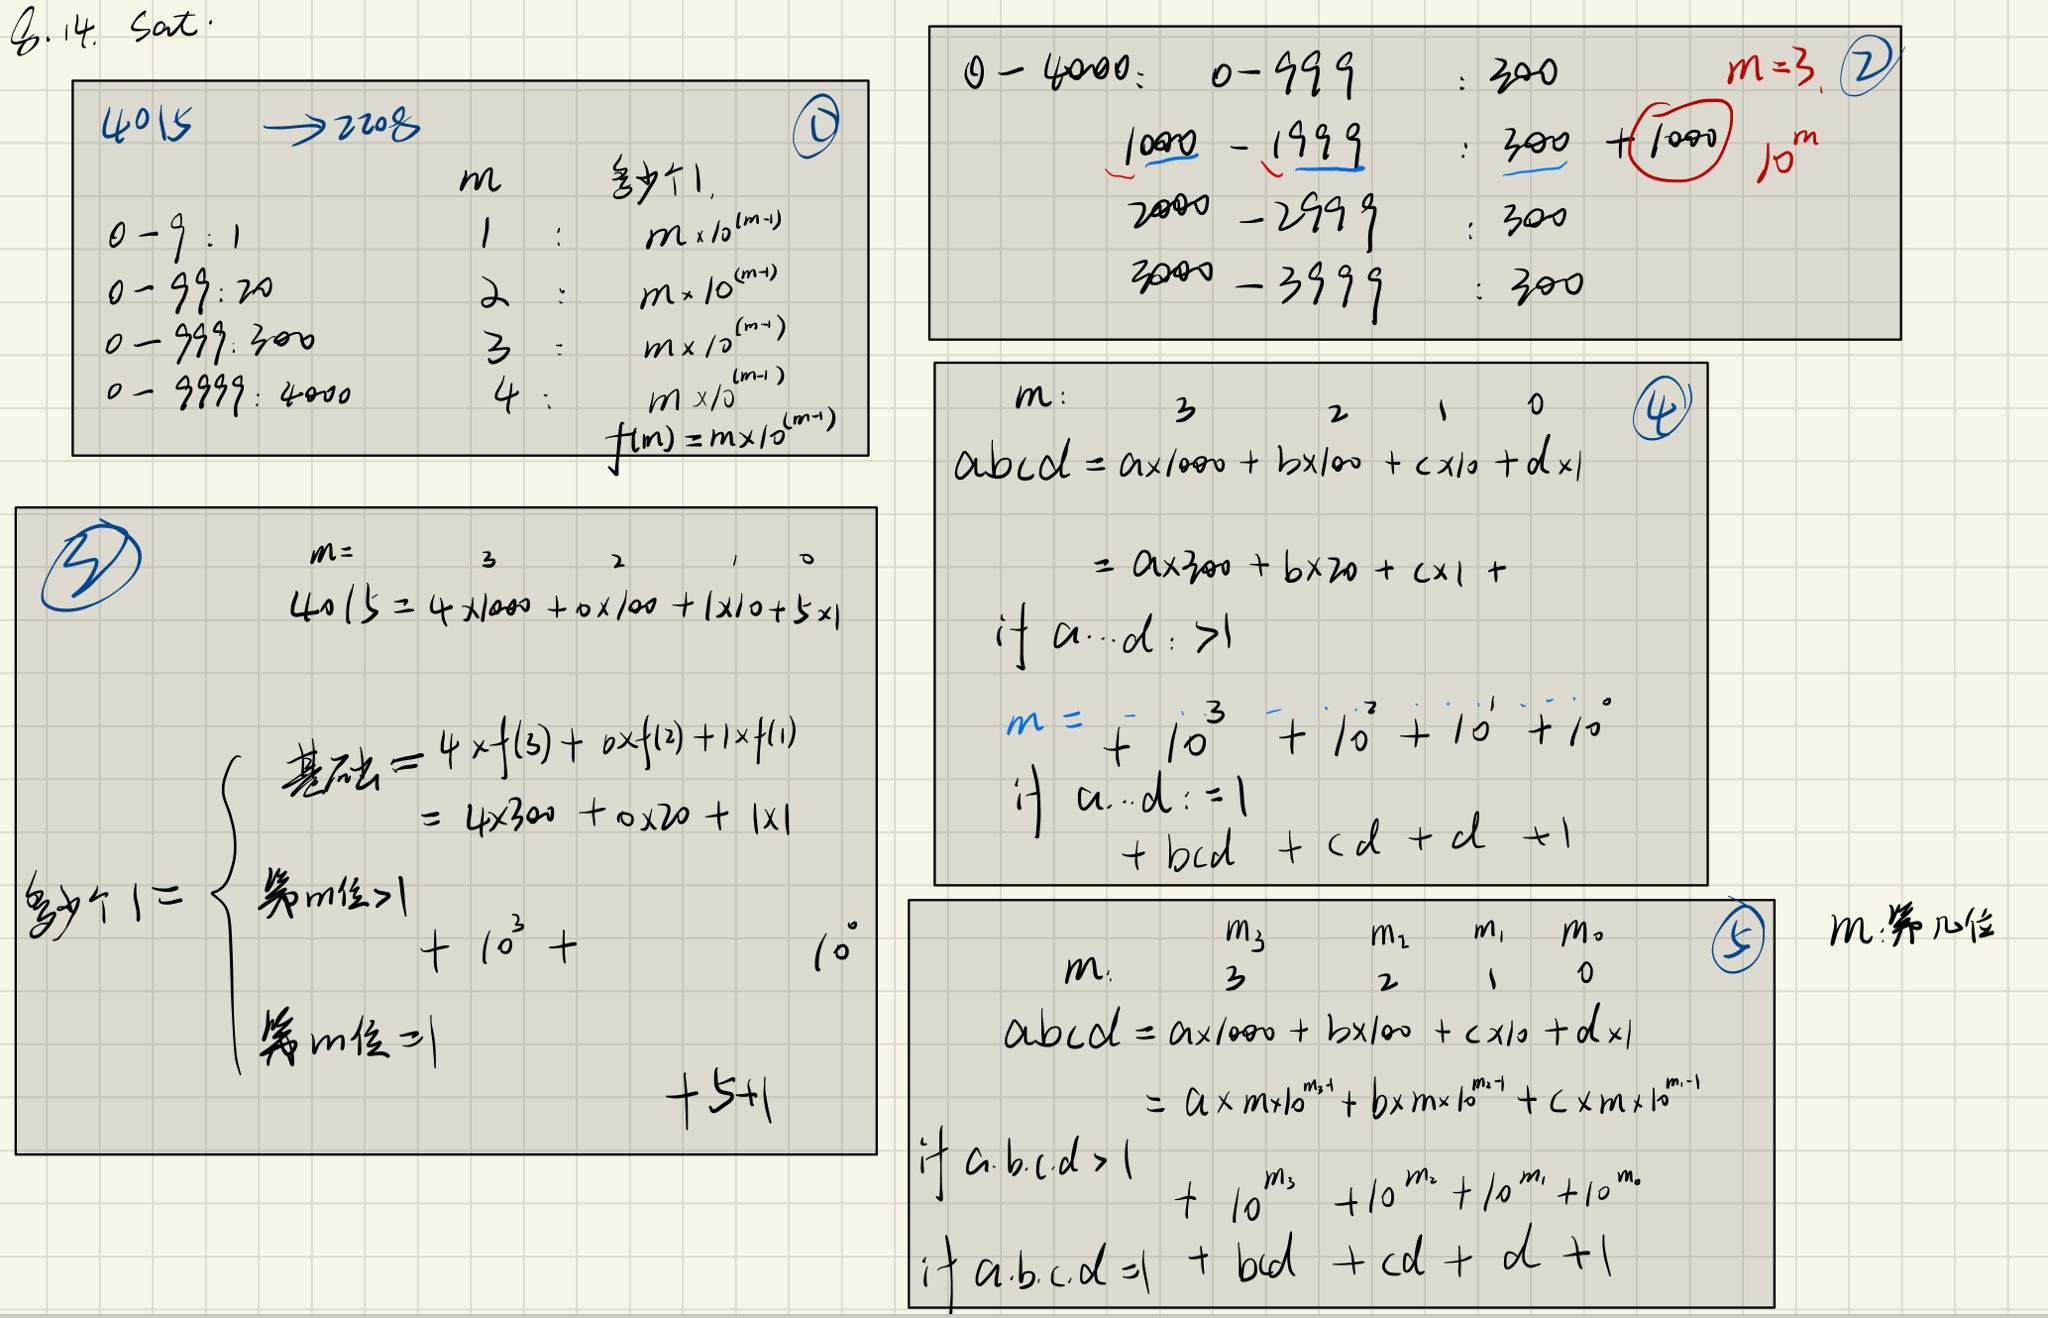 8.14. Sat.
①
4015 → 2208
m 多少个1.
0-9:1 1 : m×10^(m-1)
0-99:20 2 : m×10^(m-1)
0-999:300 3 : m×10^(m-1)
0-9999:4000 4 : m×10^(m-1)
f(m)=m×10^(m-1)
②
0-4000: 0-999 : 300 m=3.
1000-1999 : 300 +1000 10^m
2000-2999 : 300
3000-3999 : 300
③
m= 3 2 1 0
4015=4×1000+0×100+1×10+5×1
基础=4×f(3)+0×f(2)+1×f(1)
=4×300+0×20+1×1
多少个1=
第m位>1
+10^3+ 10^0
第m位=1
+5+1
④
m: 3 2 1 0
abcd=a×1000+b×100+c×10+d×1
=a×300+b×20+c×1+
if a...d:>1
m= +10^3 +10^2+10^1+10^0
if a...d:=1
+bcd +cd+d +1
⑤
m3 m2 m1 m0
m: 3 2 1 0
abcd=a×1000+b×100+c×10+d×1
=a×m×10^m3-1+b×m×10^m2-1+c×m×10^m1-1
if a.b.c.d>1
+10^m3 +10^m2+10^m1+10^m0
if a.b.c.d=1 +bcd +cd+d+1
m:第几位